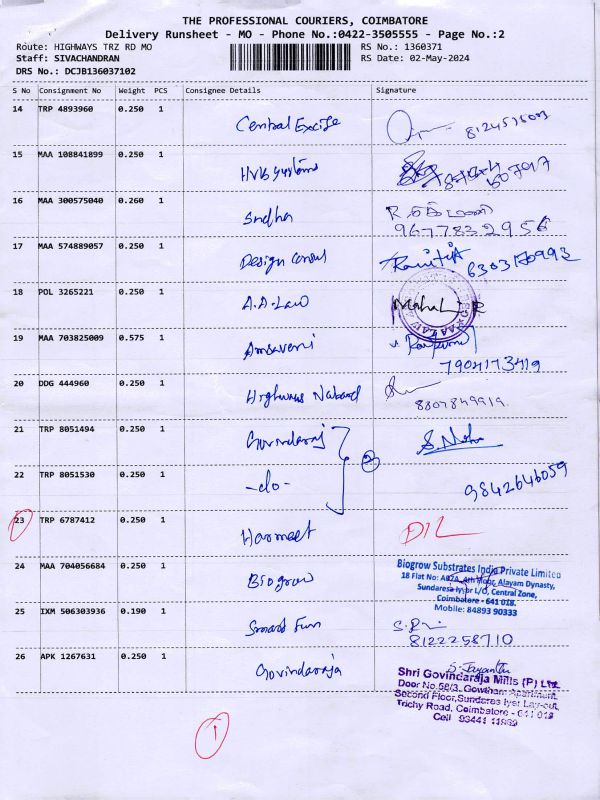 THE PROFESSIONAL COURIERS, COIMBATORE
Delivery Runsheet - MO - Phone No.:0422-3505555 - Page No.:2
Route: HIGHWAYS TRZ RD MO RS No.: 1360371
Staff: SIVACHANDRAN RS Date: 02-May-2024
DRS No.: DCJB136037102
S No Consignment No Weight PCS Consignee Details Signature
14 TRP 4893960 0.250 1 Central Excise
15 MAA 108841899 0.250 1 HVB Systems
16 MAA 300575040 0.260 1 Sndha
9677832956
17 MAA 574889057 0.250 1 Design Consul
6303170993
18 POL 3265221 0.250 1 A.A-Law
19 MAA 703825009 0.575 1 Amsaveni
7904173419
20 DDG 444960 0.250 1 Highways Nabard
8807849919
21 TRP 8051494 0.250 1 Govindaraj
2
22 TRP 8051530 0.250 1 -do- 9842646059
23 TRP 6787412 0.250 1 Harmeet DIL
24 MAA 704056684 0.250 1 Biogrow
Biogrow Substrates India Private Limited
18 Flat No: 4th Floor, Alayam Dynasty,
Sundaresa Iyer L/O, Central Zone,
Coimbatore - 641 018.
Mobile: 84893 90333
25 IXM 506303936 0.190 1 Smart Fun
8122258710
26 APK 1267631 0.250 1 Govindaraja S. Jayanthi
Shri Govindaraja Mills (P) Ltd.
Door No.58/3, Gowtham Apartment,
Second Floor, Sundaras Iyer Lay-out,
Trichy Road, Coimbatore - 641 018
Cell 93441 11989
1